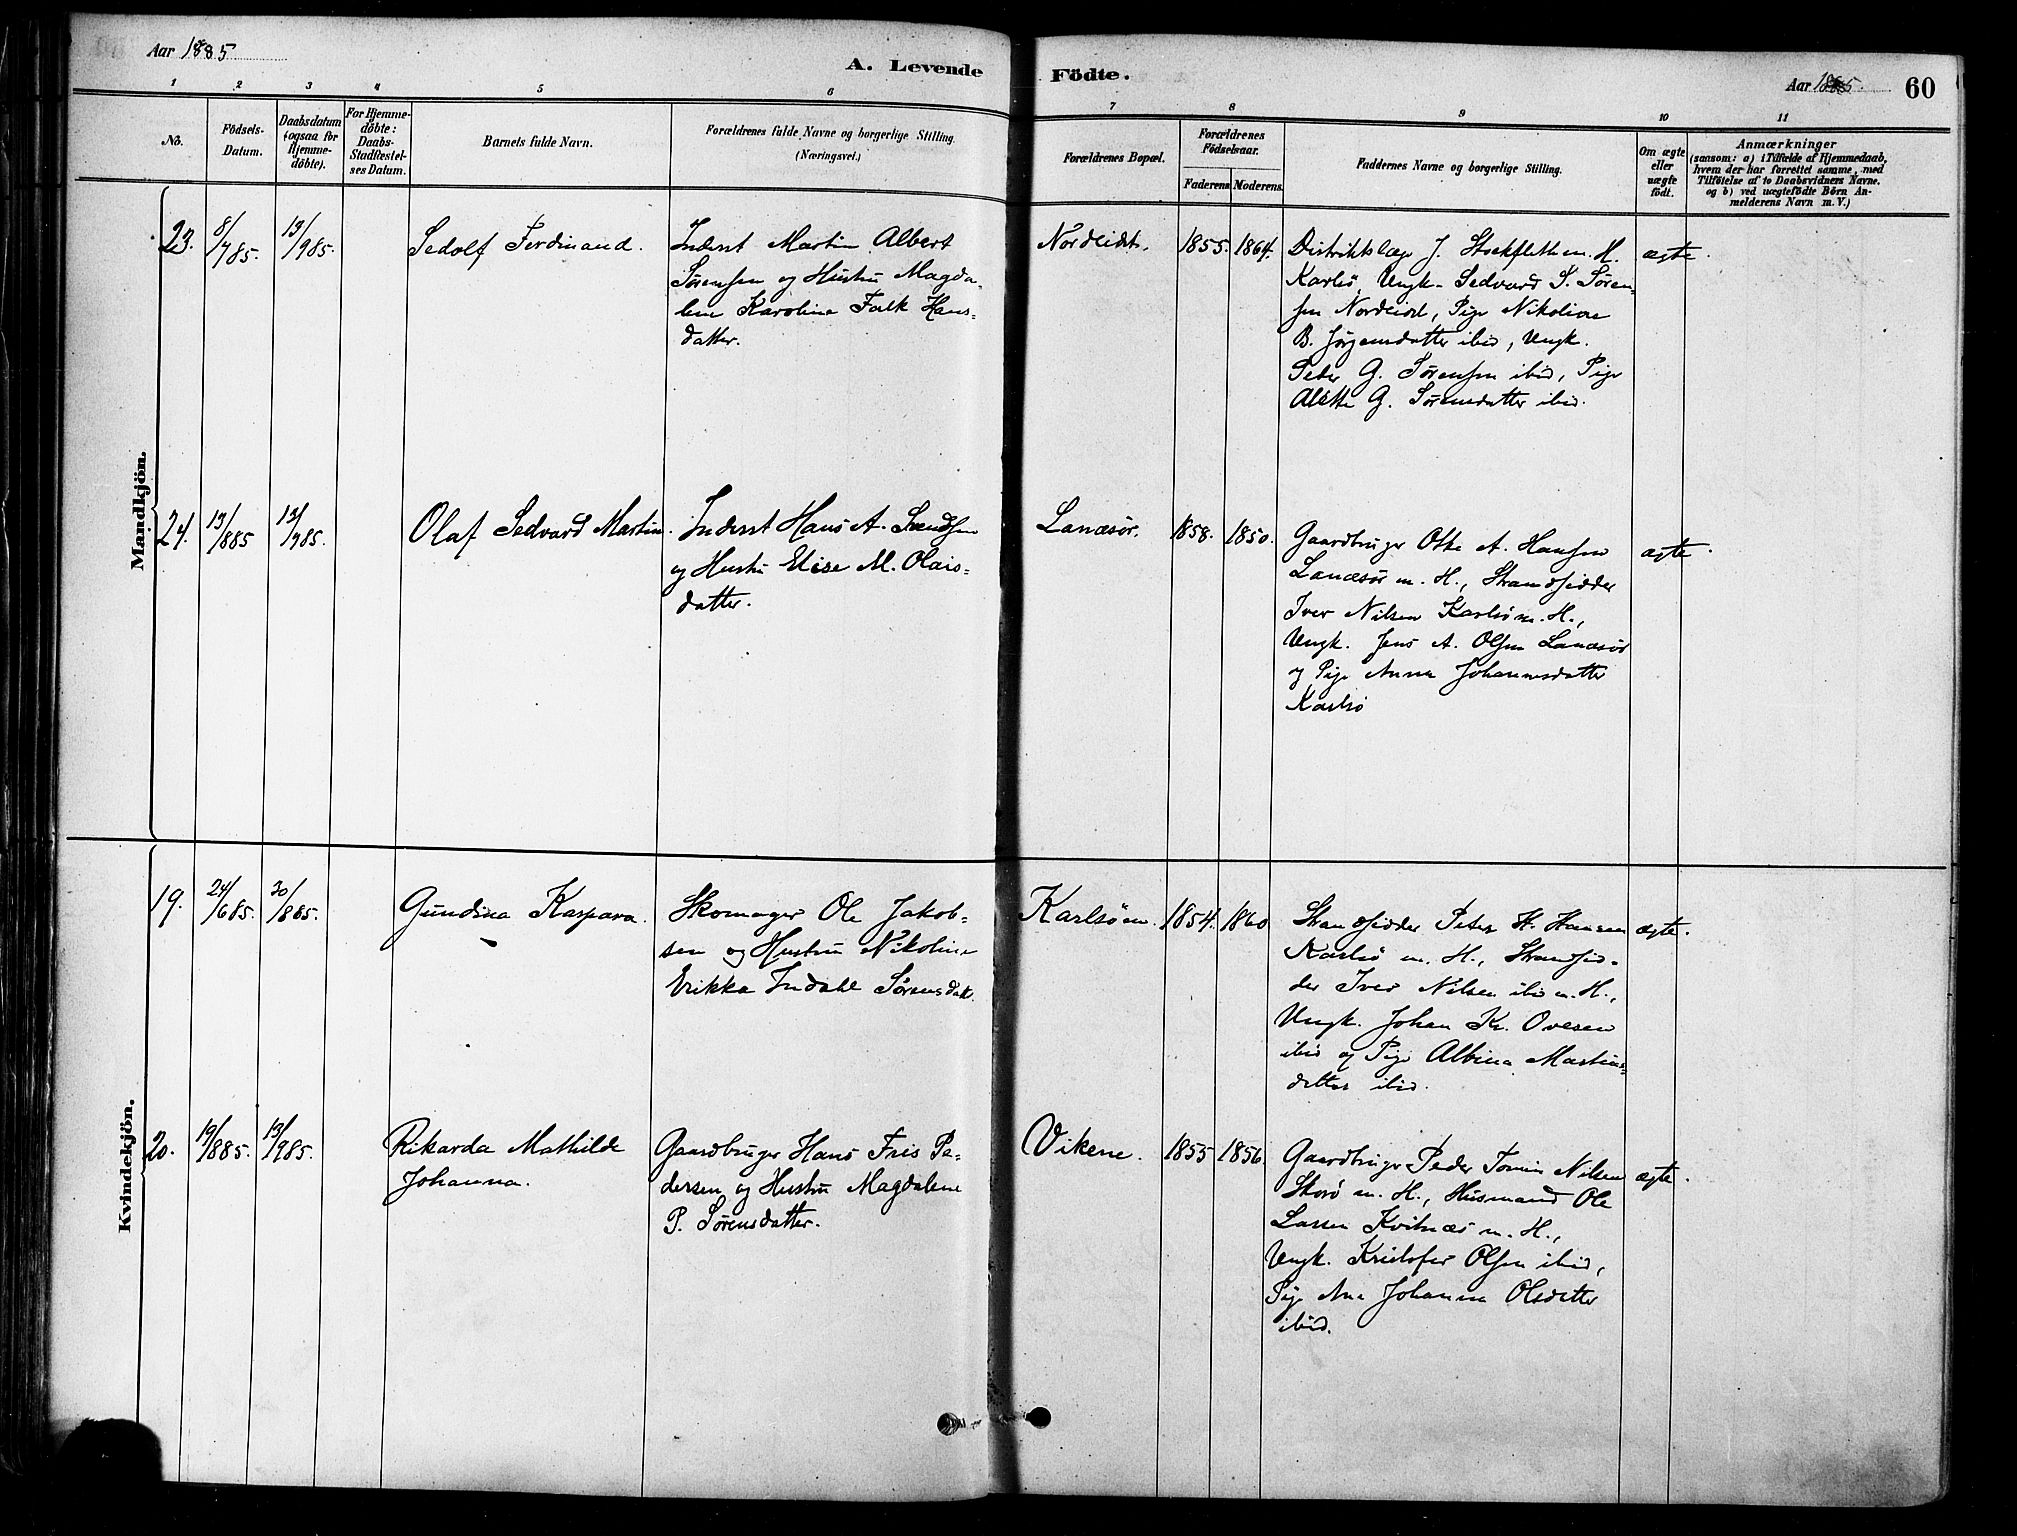 Aar 1885
A. Levende Födte.
Aar 1885. 60
1 2 3 4 5 6 7 8 9 10 11
No.
Födsels-
Datum.
Daabsdatum
(ogsaa for
Hjemme-
döbte).
For Hjemme-
döbte:
Daabs-
Stadfæstel-
ses Datum.
Barnets fulde Navn.
Forældrenes fulde Navne og borgerlige Stilling.
(Næringsvei.)
Forældrenes Bopæl.
Forældrenes
Födselsaar.
Faderens. Moderens.
Faddernes Navne og borgerlige Stilling.
Om ægte
eller
uægte
födt.
Anmærkninger
(saasom: a) i Tilfælde af Hjemmedaab,
hvem der har forrettet samme, med
Tilföielse af to Daabsvidners Navne.
og b) ved uægtefödte Börn An-
melderens Navn m. V.)
Mandkjön.
23. 8/785. 13/985. Sedolf Ferdinand. Inderst Martin Albert
Sørensen og Hustru Magda-
lene Karoline Falk Hans-
datter.
Nordeidet. 1855. 1864. Distriktslæge J. Stockfleth m. H.
Karlsö, Ungk. Sedvard S. Søren-
sen Nordeidet, Pige Nikoline
B. Jørgensdatter ibid, Ungk.
Peder G. Sørensen ibid, Pige
Alette G. Sørensdatter ibid.
ægte.
24. 13/885 13/985. Olaf Sedvard Martin. Inderst Hans A. Svendsen
og Hustru Elise M. Olais-
datter.
Lanæsør. 1858. 1850. Gaardbruger Otte A. Hansen
Lanæsør m. H., Strandsidder
Iver Nilsen Karlsö m. H.,
Ungk. Jens A. Olsen Lanæsør
og Pige Anna Johannesdatter
Karlsö
ægte.
Kvindekjön.
19. 24/685. 30/885. Gundina Kaspara. Skomager Ole Jakob-
sen og Hustru Nikoline
Erikka Indahl Sørensdatt.
Karlsöen. 1854. 1860 Strandsidder Peter H. Hansen
Karlsö m. H., Strandsid-
der Iver Nilsen ibid m. H.,
Ungk. Johan Kr. Ovesen
ibid og Pige Albina Martins-
datter ibid.
ægte.
20. 19/885. 13/985. Rikarda Mathilde
Johanna.
Gaardbruger Hans Fris Pe-
dersen og Hustru Magdalene
P. Sørensdatter.
Vikene. 1855 1856. Gaardbruger Peder Nilsen
Skorö m. H., Husmand Ole
Larsen Kvitnæs m. H.,
Ungk. Kristofer Olsen ibid,
Pige Ane Johanna Olsdatter
ibid.
ægte.